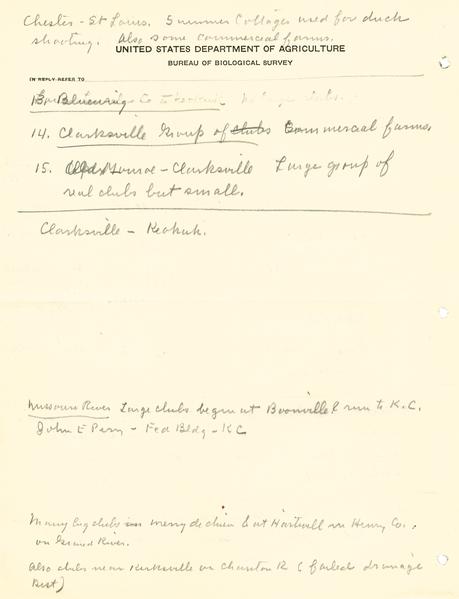 Chester - St Louis. Summer Cottages used for duck
shooting. Also some commercial farms.
UNITED STATES DEPARTMENT OF AGRICULTURE
BUREAU OF BIOLOGICAL SURVEY
IN REPLY REFER TO
14. Clarksville Group of clubs Commercial farms.
15. Old Monroe - Clarksville Large group of
real clubs but small.
Clarksville - Keokuk.
Missouri River Large clubs begin at Boonville & run to K.C.
John E Perry - Fed Bldg - KC
Many big clubs in at Hartwell in Henry Co.,
on Grand River.
Also clubs near Kirksville on Chariton R (failed drainage
Dist)